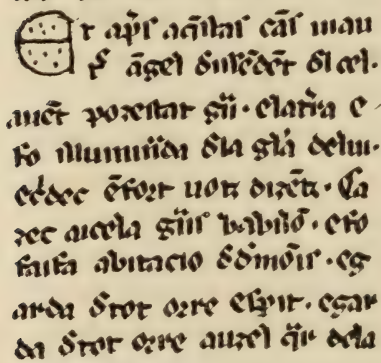 Et ap̃s aq̃stas cãs uiu au
tˢ ãgel dissẽdẽt dl cel.
auẽt poestat grã. e la tˢra e
fo illumin̄da dla gla᷃ de lui.
e cˢdec ẽ fort uotz dizẽtz. Ca
zec aicela grãs babilõ. e fo
faita abitacio d dˢmoĩs. e g
arda d tot orre esp̃it. e gar
da d tot orre auzel q̃r de la